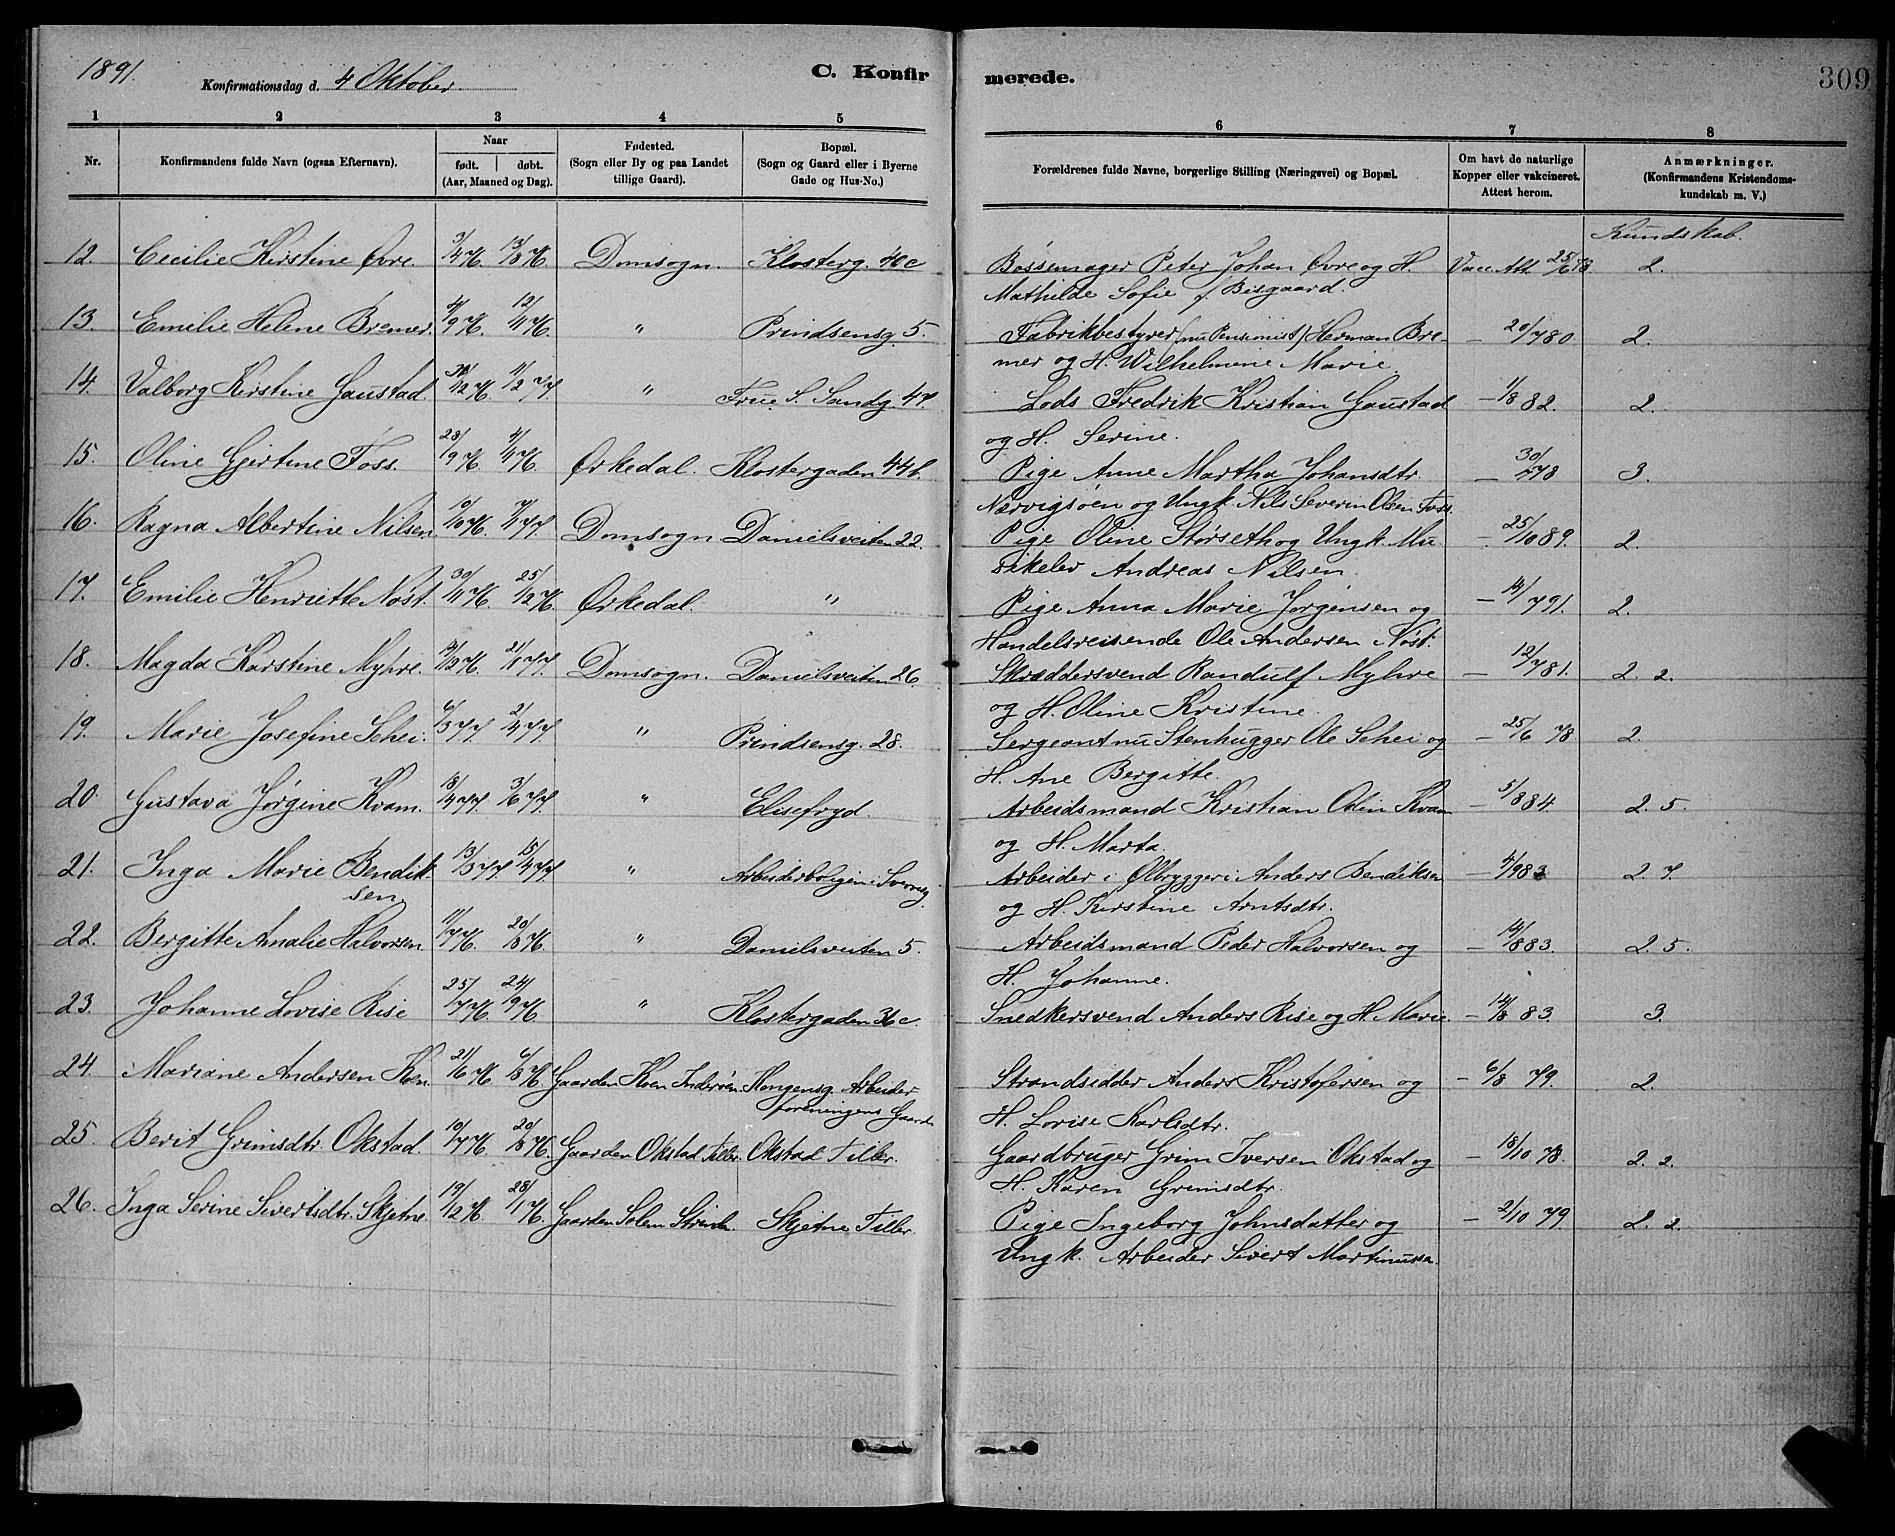 1891.
Konfirmationsdag d. 4 Oktober
C. Konfirmerede.
309
1 2 3 4 5 6 7 8
Nr.
Konfirmandens fulde Navn (ogsaa Efternavn).
Naar født. døbt. (Aar, Maaned og Dag).
Fødested. (Sogn eller By og paa Landet tillige Gaard).
Bopæl. (Sogn og Gaard eller i Byerne Gade og Hus-No.)
Forældrenes fulde Navne, borgerlige Stilling (Næringsvei) og Bopæl.
Om havt de naturlige Kopper eller vakcineret. Attest herom.
Anmærkninger. (Konfirmandens Kristendomskundskab m. V.)
Kundskab.
12. Cecilie Kirstine Øvre. 3/4 76. 13/8 76. Domsogn. Klosterg. 40c Bøssemager Peter Johan Øvre og H. Vac. Att. 25/6 78 2.
Mathilde Sofie f. Bisgaard.
13. Emilie Helene Bremer. 4/9 76. 12/11 76. " Prindsensg. 5. Fabrikbestyrer (nu Pensionist) Herman Bre- — 20/7 80 2.
mer og H. Wilhelmene Marie.
14. Valborg Kirstine Gaustad. 31/12 76. 11/2 77. " Frue S. Sandg. 47. Lods Fredrik Kristian Gaustad — 1/8 82. 2.
og H. Serine.
15. Oline Gjertine Foss. 28/9 76. 4/11 76. Ørkedal. Klostergaden 44b. Pige Anne Martha Johansdtr. — 30/ 78 3.
Nærvigsøen og Ungk. Nils Severin Olsen Foss.
16. Ragna Albertine Nilsen. 10/10 76. 7/1 77. Domsogn Danielsveiten 22. Pige Oline Størseth og Ungk. Mu — 25/10 89. 2.
sikelev Andreas Nilsen.
17. Emilie Henriette Nøst. 30/11 76. 25/12 76. Ørkedal. " Pige Anna Marie Jørgensen og — 14/7 91. 2.
Handelsreisende Ole Andersen Nøst.
18. Magda Karstine Myhre. /12 76. 21/1 77. Domsogn. Danielsveiten 26. Skræddersvend Randulf Myhre — 12/7 81. 2. 2.
og H. Oline Kristine.
19. Marie Josefine Schei. 6/3 77. 2/4 77. " Prindsensg. 28. Sergeant nu Stenhugger Ole Schei og — 25/6 78 2.
H. Ane Bergitte.
20. Gustava Jørgine Kvam. 18/4 77. 3/6 77. " Elisefryd. Arbeidsmand Kristian Odin Kvam — 5/8 84. 2. 5.
og H. Marta.
21. Inga Marie Bendik- 13/3 77. 15/4 77. " Arbeiderboligen i Arbeider i Ølbryggeri Anders Bendiksen — 4/9 83 2. 7.
sen. og H. Kirstine Arntsdtr.
22. Bergitte Amalie Halvorsen. 11/7 76. 20/8 76. " Danielsveiten 5. Arbeidsmand Peder Halvorsen og — 14/8 83. 2. 5.
H. Johanne.
23. Johanne Lovise Rise 25/7 76. 24/9 76. " Klostergaden 36c. Snedkersvend Anders Rise og H. Marie. — 14/8 83. 3.
24. Mariane Andersen Koen. 21/6 76 6/8 76. Gaarden Koen Inderøen. Kongensg. Arbeider Strandsidder Anders Kristofersen og — 6/8 79. 2.
foreningens Gaard H. Lovise Karlsdtr.
25. Berit Grimsdtr. Okstad. 10/7 76. 20/8 76. Gaarden Okstad Tiller. Okstad Tiller. Gaardbruger Grim Iversen Okstad og — 18/10 78. 2. 2.
H. Karen Grimsdtr.
26. Inga Serine Sivertsdtr. Skjetne. 19/12 76. 28/1 76. Gaarden Solem Strinden Skjetne Tiller. Pige Ingeborg Johnsdatter og — 2/10 79 2. 2.
Ungk. Arbeider Sivert Martinussen.